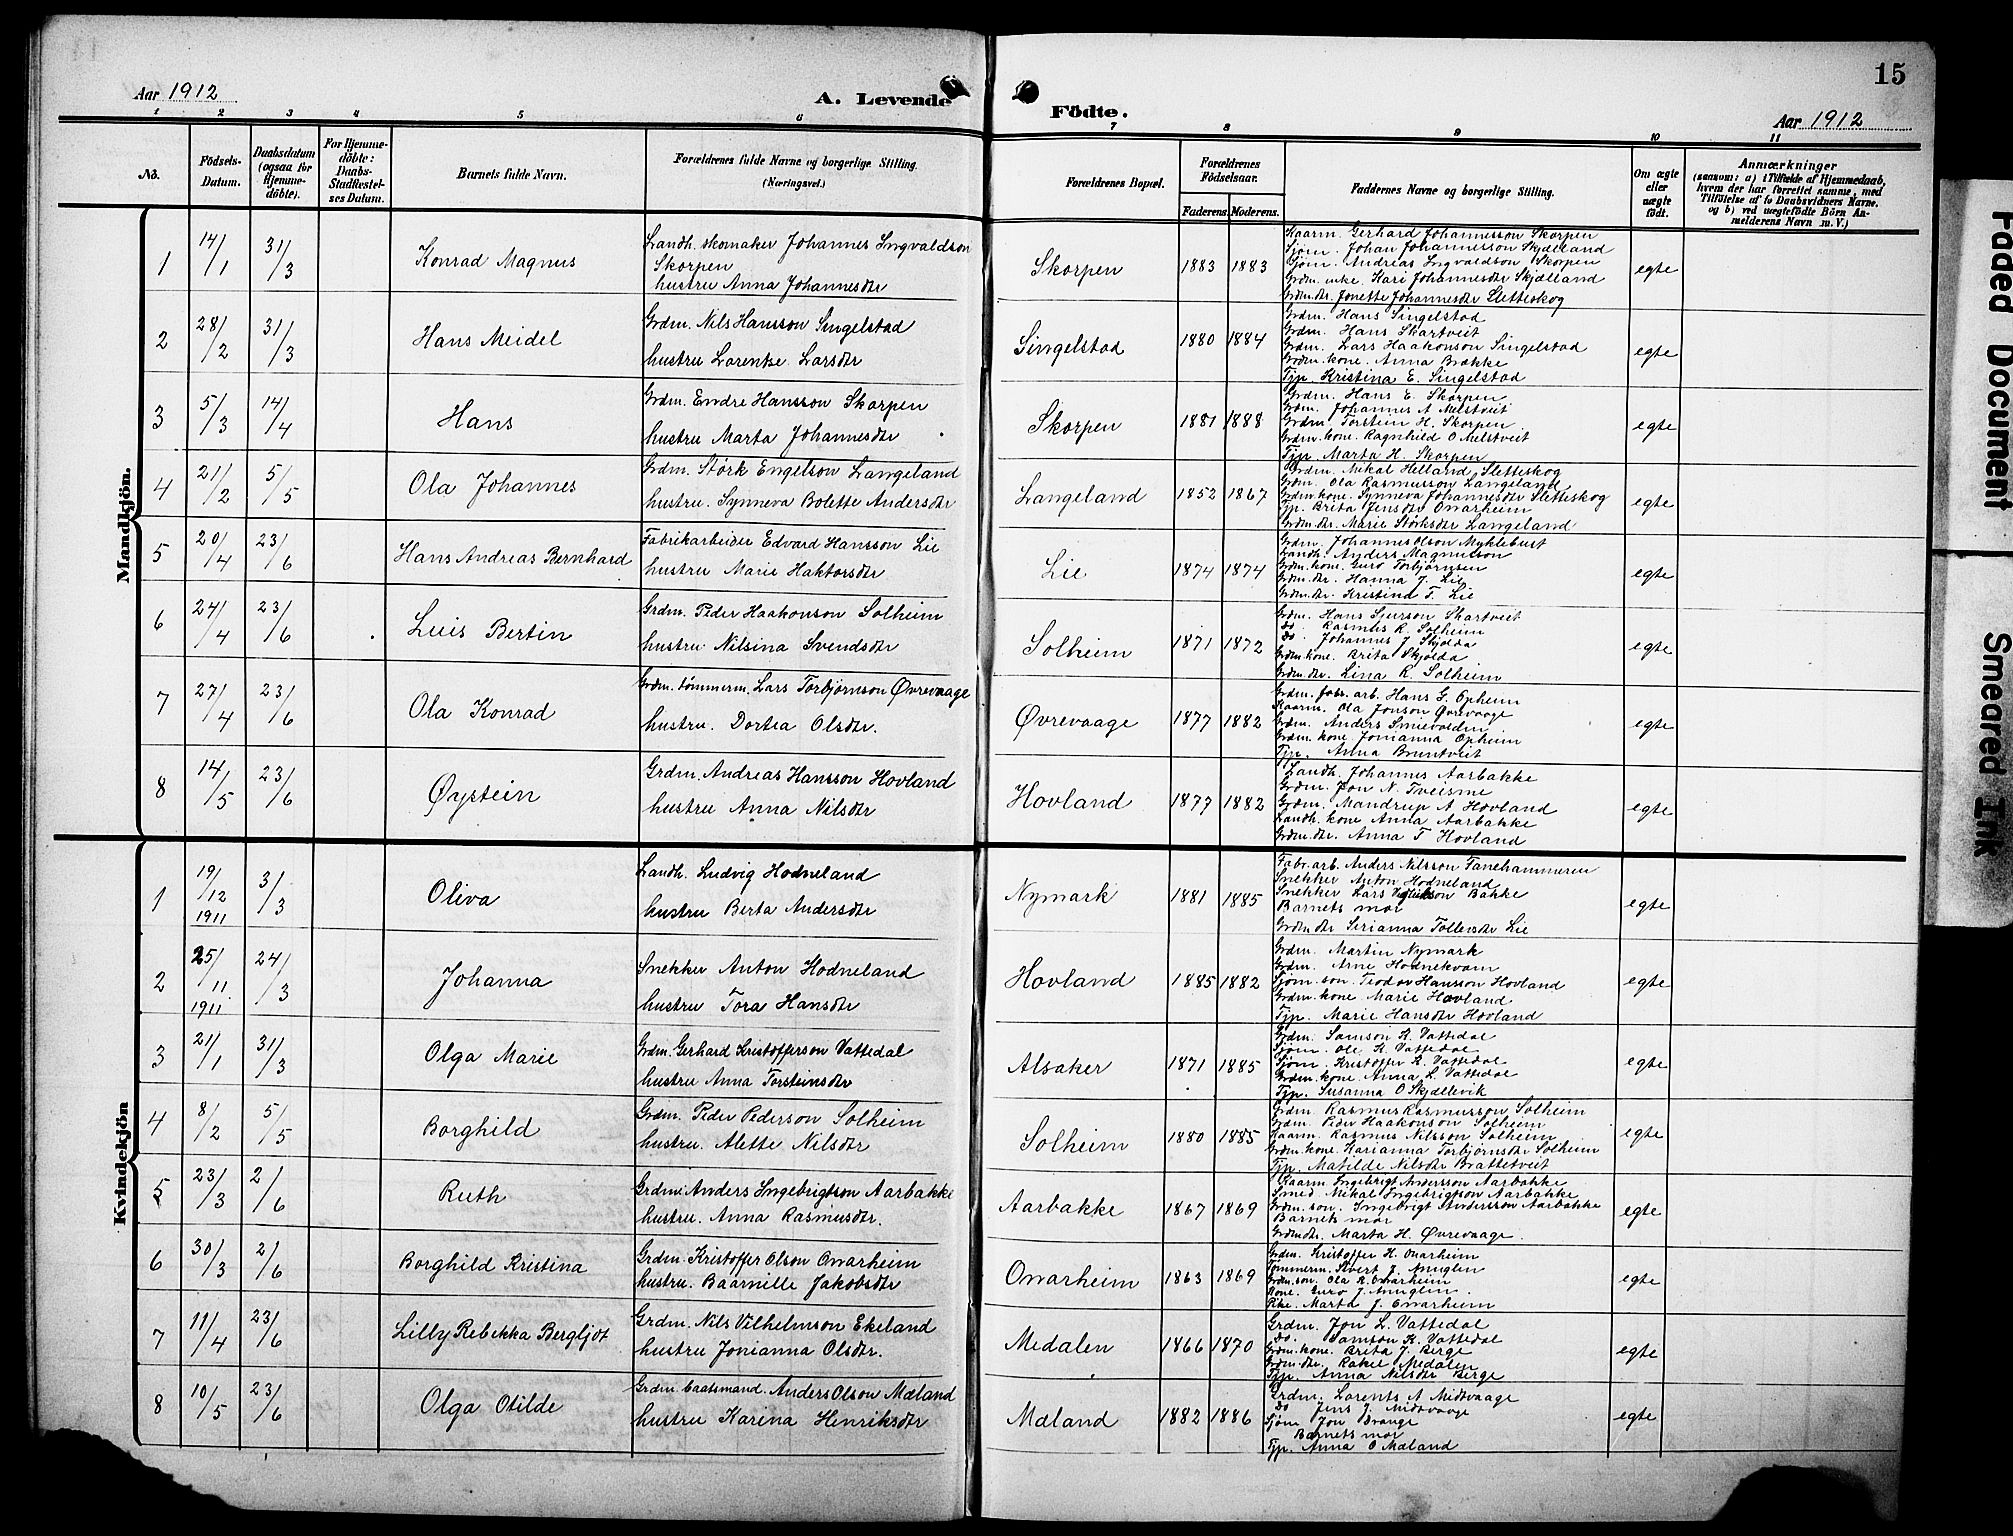 15
Aar 1912
A. Levende Födte.
Aar 1912
1 2 3 4 5 6 7 8 9 10 11
No.
Födsels-Datum.
Daabsdatum (ogsaa for Hjemme-döbte).
For Hjemme-döbte: Daabs-Stadfæstel-ses Datum.
Barnets fulde Navn.
Forældrenes fulde Navne og borgerlige Stilling. (Næringsvei.)
Forældrenes Bopæl.
Forældrenes Födselsaar.
Faderens. Moderens.
Faddernes Navne og borgerlige Stilling.
Om ægte eller uægte födt.
Anmærkninger
(saasom: a) i Tilfælde af Hjemmedaab, hvem der har forrettet samme, med Tilföielse af to Daabsvidners Navne, og b) ved uægtefödte Börn An-melderens Navn m. V.)
Mandkjön.
1 14/1 31/3 Konrad Magnus
Landh. skomaker Johannes Ingvaldson
Skorpen
hustru Anna Johannesdtr
Skorpen 1883 1883 egte
Kaarm. Gerhard Johannesson Skorpen
Sjøm. Johan Johannesson Skjælland
Sjøm. Andreas Ingvaldson Skorpen
Grdm. enke. Kari Johannesdtr Skjælland
Grdm. dtr. Jonette Johannesdtr Sletteskog
2 28/2 31/3 Hans Meidel
Grdm. Nils Hansson Singelstad
hustru Larenke Larsdtr
Singelstad 1880 1884 egte
Grdm. Hans Singelstad
Grdm. Hans Skartveit
Grdm. Lars Haakonson Singelstad
Grdm. kone. Anna Brække
Tjp. Kristina E. Singelstad
3 5/3 14/4 Hans
Grdm. Endre Hansson Skorpen
hustru Marta Johannesdtr
Skorpen 1881 1888 egte
Grdm. Hans E. Skorpen
Grdm. Johannes A Melstveit
Grdm. Torstein H. Skorpen
Grdm. kone. Ragnhild O Melstveit
Tjp. Marta H. Skorpen
4 21/2 5/5 Ola Johannes
Grdm. Størk Engelson Langeland
hustru. Synneva Bolette Andersdtr
Langeland 1852 1867 egte
Grdm. Mikal Helland Sletteskog
Grdm. Ola Rasmusson Langeland
Grdm. kone. Synneva Johannesdtr Sletteskog
Tp. Brita Jensdtr Onarheim
Grdm. dtr. Marie Størksdtr Langeland
5 20/4 23/6 Hans Andreas Bernhard
Fabrikarbeider Edvard Hansson Lie
hustru Marie Haktorsdtr
Lie 1874 1874 egte
Grdm. Johannes Olson Myklebust
Landh. Anders Magnusson
Grdm. kone. Guro Torbjørnsen
Grdm. dtr. Hanna J. Lie
Grdm. dtr. Kristina T. Lie
6 24/4 23/6 Luis Bertin
Grdm. Peder Haakonson Solheim
hustru. Nilsina Svendsdtr
Solheim 1871 1872 egte
Grdm. Hans Sjurson Skartveit
Do. Rasmus R. Solheim
Do. Johannes J Skjølda
Grdm. kone. Brita Skjølda
Grdm. dtr. Lina R. Solheim
7 27/4 23/6 Ola Konrad
Grdm. tømmerm. Lars Torbjørnson Øvrevaage
hustru. Dortea Olsdtr.
Øvrevaage 1877 1882 egte
Grdm. fabr. arb. Hans G. Opheim
Kaarm. Ola Jonson Øvrevaage
Grdm. Anders Smievolden
Grdm. kone Jonianna Opheim
Tjp. Anna Bruntveit
8 14/5 23/6 Øystein
Grdm. Andreas Hansson Hovland
hustru Anna Nilsdtr
Hovland 1877 1882 egte
Landh. Johannes Aarbakke
Grdm. Jon N. Tveisme
Grdm. Mandrup A Hovland
Landh. kone Anna Aarbakke
Grdm. dtr. Anna T Hovland
Kvindekjön
1 19/12 1911 3/3 Oliva
Landh. Ludvig Hodneland
hustru Berta Andersdtr
Nymark 1881 1885 egte
Fabr. arb. Anders Nilsson Fanehammeren
Snekker Anton Hodneland
Snekker Lars Bakke
Barnets mor
Grdm dtr Serianna Tollevsdtr Lie
2 25/11 1911 24/3 Johanna
Snekker Anton Hodneland
hustru Tora Hansdtr
Hovland 1885 1882 egte
Grdm. Martin Nymark
Grdm. Arne Hodnekvam
Sjøm. søn. Teodor Hansson Hovland
Grdm. kone Marie Hovland
Tjp. Marie Hansdtr Hovland
3 21/1 31/3 Olga Marie
Grdm. Gerhard Kristofferson Vattedal
hustru Anna Torsteinsdtr
Alsaker 1871 1885 egte
Grdm. Samson K. Vattedal
Sjøm. Ole K. Vattedal
Sjøm. Kristoffer R. Vattedal
Grdm. kone. Anna L. Vattedal
Tjp. Susanna O Skjellevik
4 8/2 5/5 Borghild
Grdm. Peder Pederson Solheim
hustru. Alette Nilsdtr
Solheim 1880 1885 egte
Grdm. Rasmus Rasmusson Solheim
Grdm. Peder Haakonson Solheim
Kaarm. Rasmus Nilsson Solheim
Grdm. kone. Karianna Torbjørnsdtr Solheim
Tjp. Matilde Nilsdtr Brattetveit
5 23/3 2/6 Ruth
Grdm. Anders Ingebrigtson Aarbakke
hustru. Anna Rasmusdtr.
Aarbakke 1867 1869 egte
Kaarm. Ingebrigt Andersson Aarbakke
Smed. Mikal Ingebrigtson Aarbakke
Grdm. søn. Ingebrigt Andersson Aarbakke
Barnets mor
Grdm dtr. Marta H. Øvrevaage.
6 30/3 2/6 Borghild Kristina
Grdm. Kristoffer Olson Onarheim
hustru. Baarnille Jakobsdtr
Onarheim 1863 1869 egte
Grdm. Kristoffer H. Onarheim
Tømmerm. Sivert J. Anuglen
Grdm. søn. Ola R. Onarheim
Kone. Guro J. Anuglen.
Pike. Marta J. Onarheim
7 11/4 23/6 Lilly Rebekka Bergljot
Grdm. Nils Vilhelmson Ekeland
hustru Jonianna Olsdtr.
Medalen 1866 1870 egte
Grdm. Jon L. Vattedal
Do. Samson K. Vattedal
Grdm. kone. Brita J. Berge
Grdm. dtr. Rakel Medalen
Tjp. Anna Nilsdtr Berge
8 10/5 23/6 Olga Otilde
Grdm. baatsmand. Anders Olson Mæland
hustru Karina Henriksdtr
Mæland 1882 1886 egte
Grdm. Lorents A Midtvaage
Do Jens J. Midtvaage
Sjøm Jon Drange
Barnets mor
Tjp. Anna O Mæland
Faded Document Smeared Ink